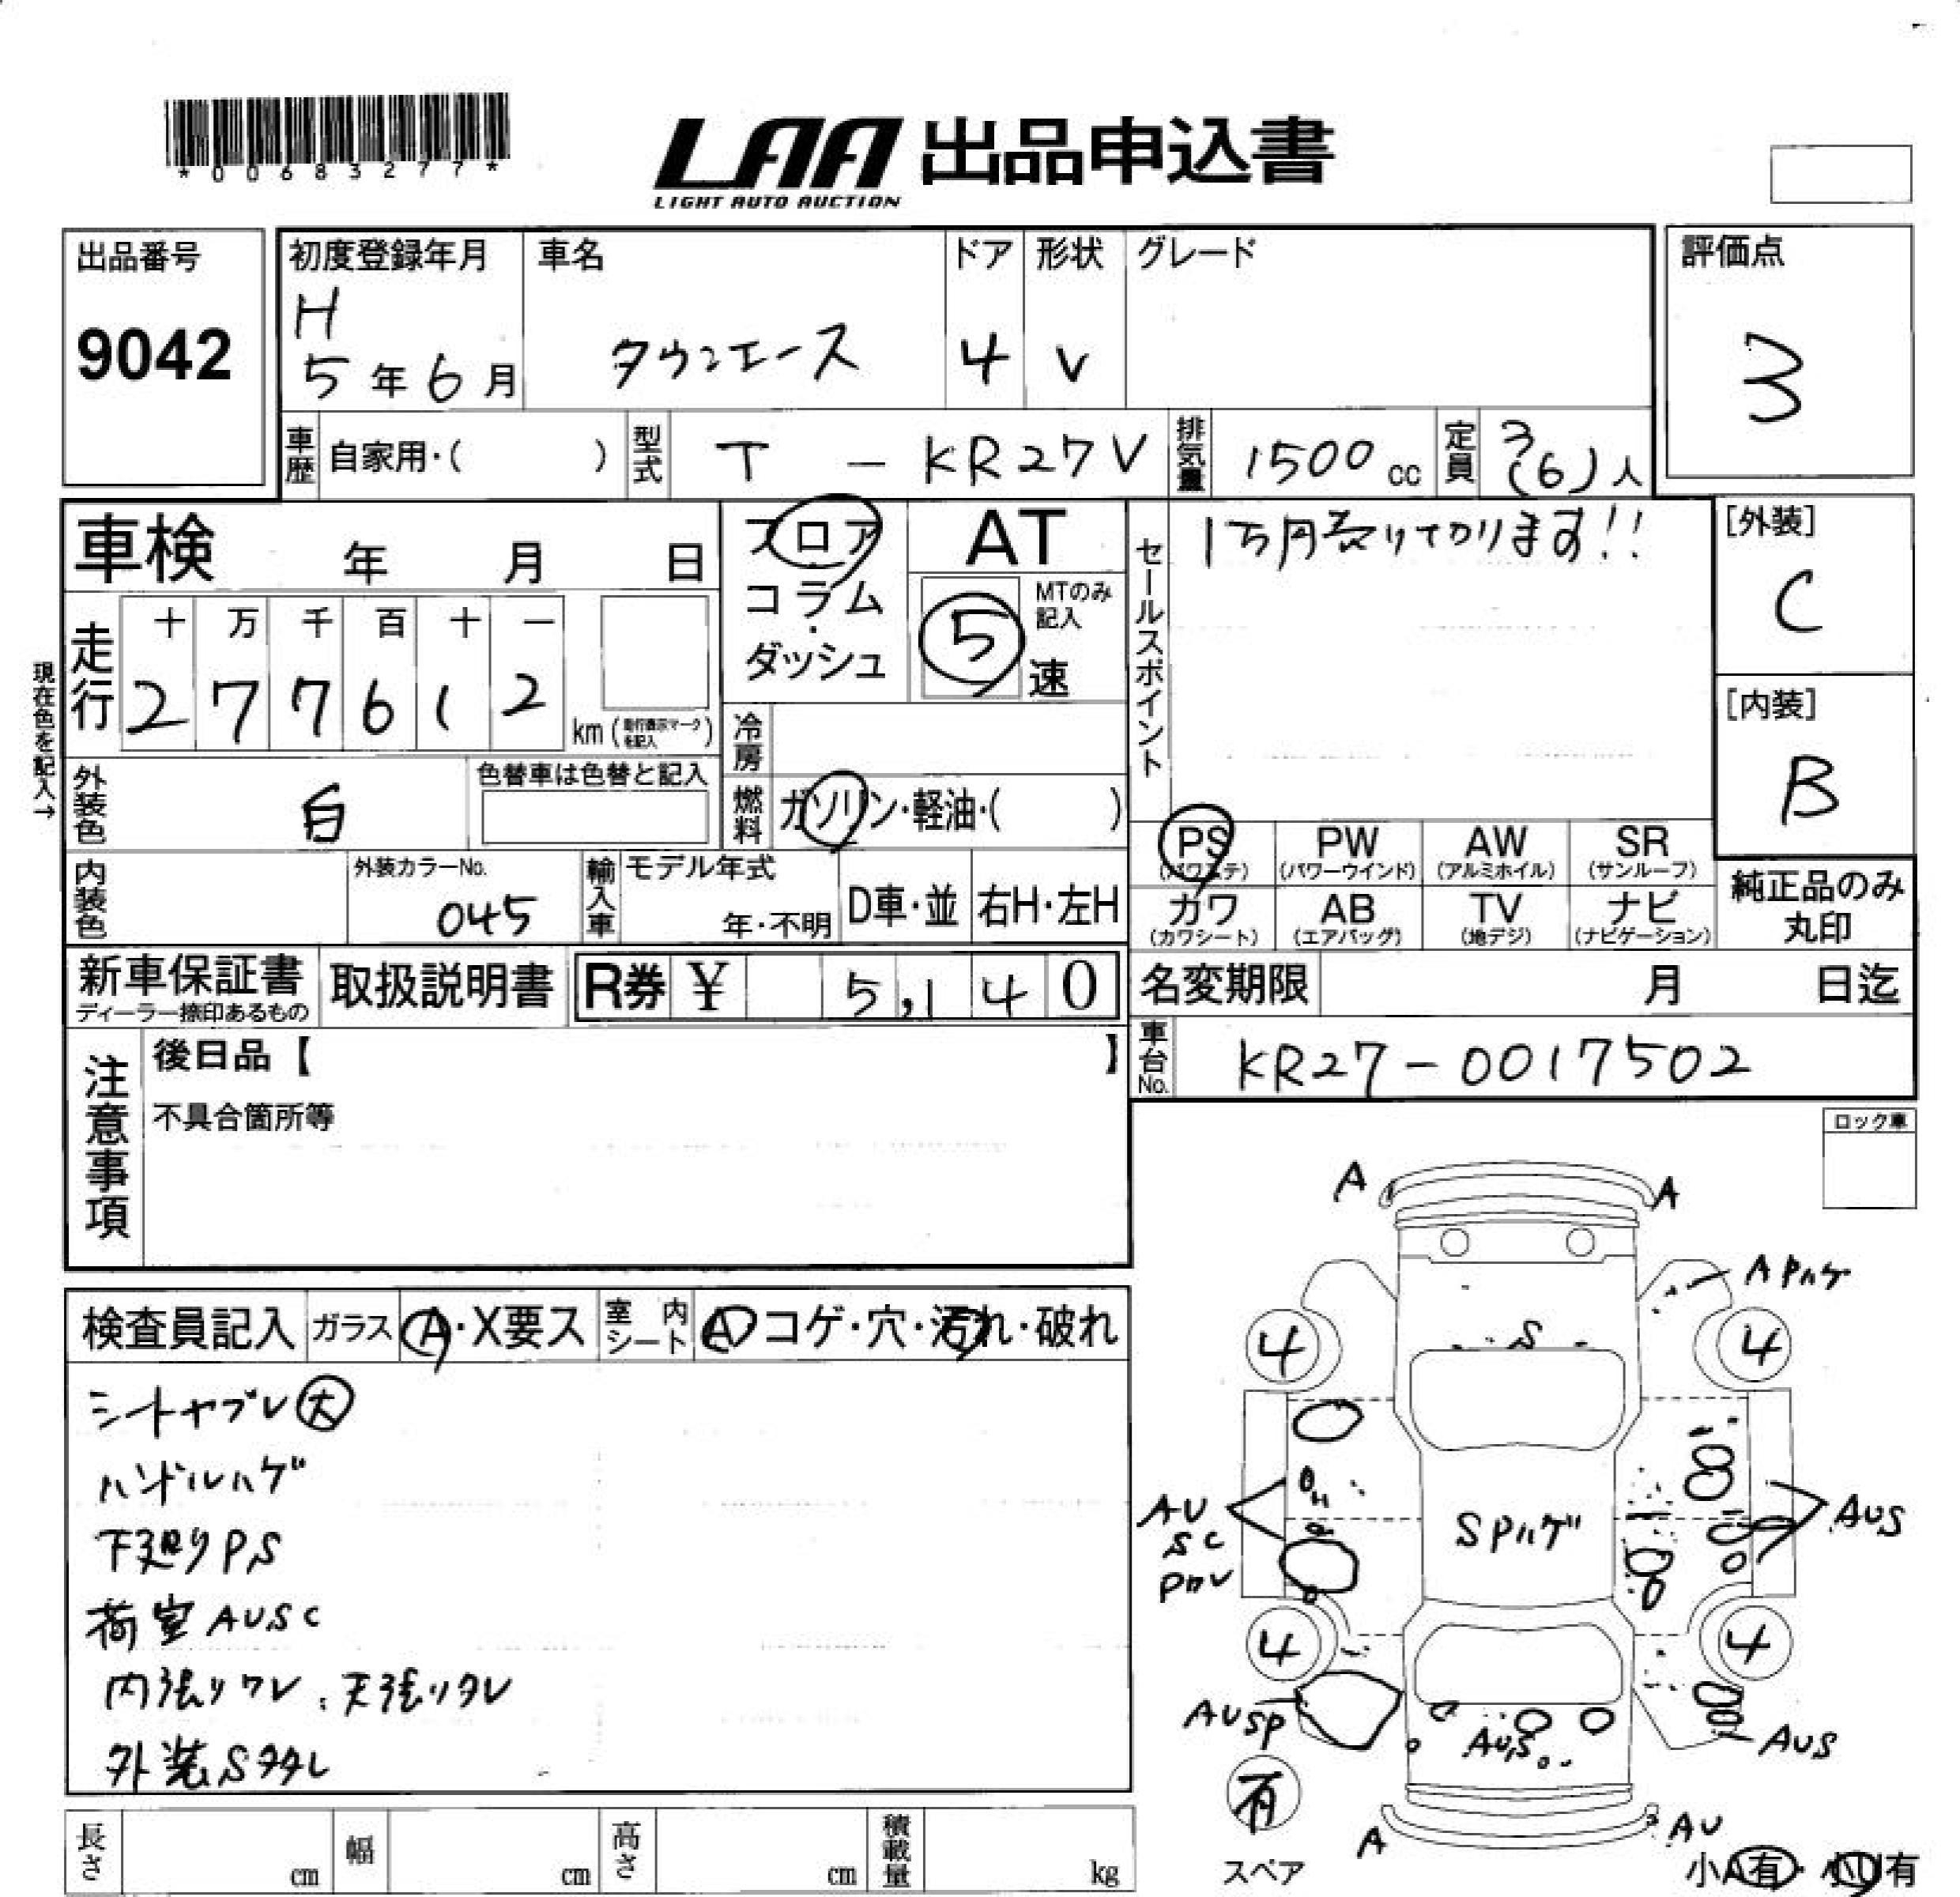 *00683277*
LAA 出品申込書
LIGHT AUTO AUCTION
出品番号
9042
初度登録年月
H
5年6月
車名
タウンエース
ドア
4
形状
V
グレード
評価点
3
車歴 自家用・( )
型式 T - KR27V
排気量 1500cc
定員 3(6)人
車検 年 月 日
フロア・コラム・ダッシュ
AT
MTのみ記入
5速
セールスポイント
1万円売り切ります!!
[外装]
C
[内装]
B
現在色を記入→
走行
十 万 千 百 十 一
2 7 7 6 1 2
km (走行表示マークを記入)
冷房
燃料 ガソリン・軽油・( )
外装色 白
色替車は色替と記入
内装色
外装カラーNo.
045
輸入車
モデル年式
年・不明
D車・並
右H・左H
PS (パワステ)
PW (パワーウインド)
AW (アルミホイル)
SR (サンルーフ)
カワ (カワシート)
AB (エアバッグ)
TV (地デジ)
ナビ (ナビゲーション)
純正品のみ丸印
新車保証書
ディーラー捺印あるもの
取扱説明書
R券 ¥ 5,140
名変期限 月 日迄
車台No. KR27-0017502
注意事項
後日品【 】
不具合箇所等
ロック車
検査員記入
ガラス A・X要ス
室内シート A・コゲ・穴・汚れ・破れ
シートヤブレ大
ハンドルハゲ
下廻りPS
荷室AUSC
内張りワレ、天張りタレ
外装Sタタレ
A
A
A Pハゲ
S
4
4
AU
SC
SPハゲ
AUS
4
4
AUSP
AUS
AUS
有
スペア
A
AU
小A有・小U有
長さ cm
幅 cm
高さ cm
積載量 kg